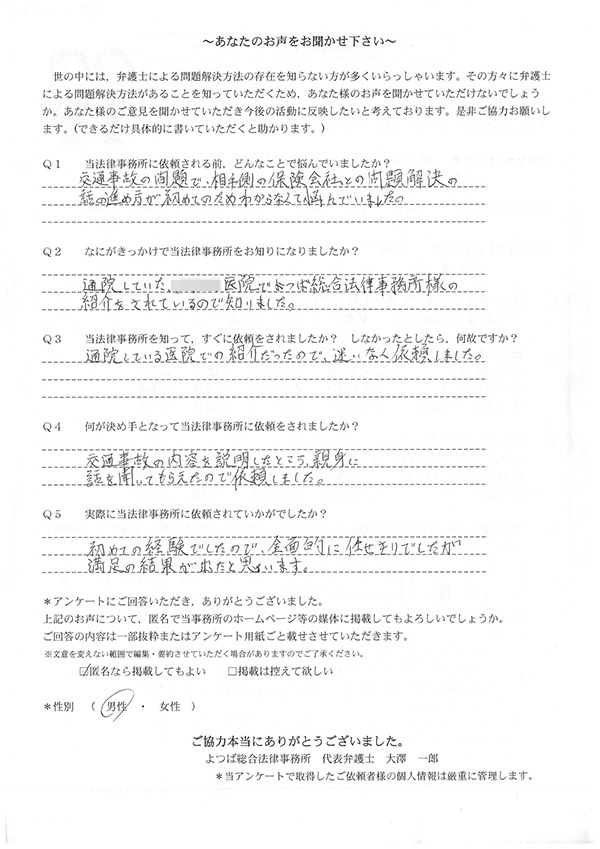 ～あなたのお声をお聞かせ下さい～
世の中には、弁護士による問題解決方法の存在を知らない方が多くいらっしゃいます。その方々に弁護士
による問題解決方法があることを知っていただくため、あなた様のお声を聞かせていただけないでしょう
か。あなた様のご意見を聞かせていただき今後の活動に反映したいと考えております。是非ご協力お願いし
ます。（できるだけ具体的に書いていただくと助かります。）
Ｑ１　当法律事務所に依頼される前、どんなことで悩んでいましたか？
交通事故の問題で、相手側の保険会社との問題解決の
話の進め方が初めてのためわからなくて悩んでいました。
Ｑ２　なにがきっかけで当法律事務所をお知りになりましたか？
通院していた、医院でよつば総合法律事務所様の
紹介をされているので知りました。
Ｑ３　当法律事務所を知って、すぐに依頼をされましたか？　しなかったとしたら、何故ですか？
通院している医院での紹介だったので、迷いなく依頼しました。
Ｑ４　何が決め手となって当法律事務所に依頼をされましたか？
交通事故の内容を説明したところ、親身に
話を聞いてもらえたので依頼しました。
Ｑ５　実際に当法律事務所に依頼されていかがでしたか？
初めての経験でしたので、全面的に任せきりでしたが
満足の結果が出たと思います。
＊アンケートにご回答いただき、ありがとうございました。
上記のお声について、匿名で当事務所のホームページ等の媒体に掲載してもよろしいでしょうか。
ご回答の内容は一部抜粋またはアンケート用紙ごと載せさせていただきます。
※文意を変えない範囲で編集・要約させていただく場合がありますのでご了承ください。
☑匿名なら掲載してもよい　□掲載は控えて欲しい
＊性別　（　男性　・　女性　）
ご協力本当にありがとうございました。
よつば総合法律事務所　代表弁護士　大澤　一郎
＊当アンケートで取得したご依頼者様の個人情報は厳重に管理します。